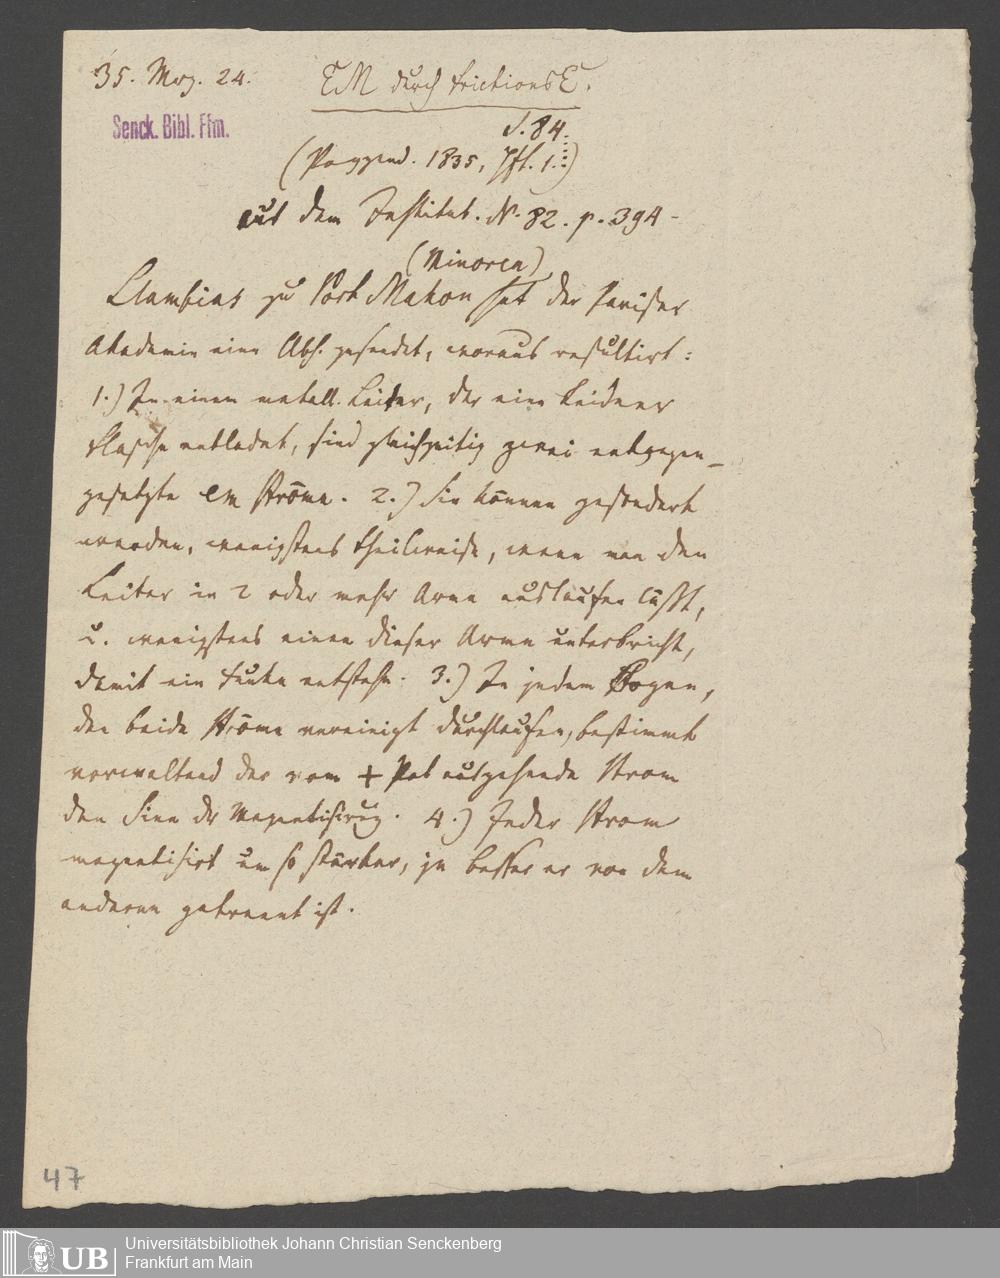 35. Mrz. 24.
EM durch FrictionsE.
Senck. Bibl. Ffm.
S. 84.
(Poggend. 1835, Hft. 1.)
aus dem Institut. N. 82. p. 394-
(Minorca)
Llambias zu Port Mahon hat der Pariser
Akademie eine Abh. gesendet, woraus resultirt:
1.) In einem metall. Leiter, der eine Leidner
Flasche entladet, sind gleichzeitig zwei entgegen-
gesetzte em Ströme. 2.) Sie können gesondert
werden, wenigstens theilweise, wenn man den
Leiter in 2 oder mehr Arme auslaufen läßt,
u. wenigstens einen dieser Arme unterbricht,
damit ein Funke entsteht. 3.) In jedem Bogen,
den beide Ströme vereinigt durchlaufen, bestimmt
vorwaltend der vom + Pol ausgehende Strom
den Sinn der Magnetisirug. 4.) Jeder Strom
magnetisirt um so stärker, je besser er von dem
anderen getrennt ist.
47
UB
Universitätsbibliothek Johann Christian Senckenberg
Frankfurt am Main